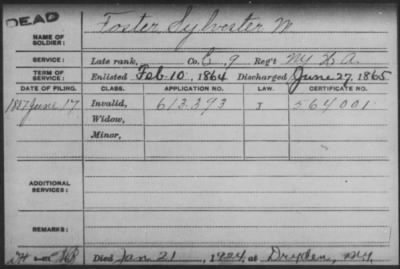 DEAD
NAME OF SOLDIER: Foster Sylvester W
SERVICE: Late rank, Co. E, 9 Reg't NY H A.
TERM OF SERVICE: Enlisted Feb 10, 1864 Discharged June 27, 1865
DATE OF FILING. CLASS. APPLICATION NO. LAW. CERTIFICATE NO.
1887 June 17 Invalid, 613.393 J 564001
Widow,
Minor,
ADDITIONAL SERVICES:
REMARKS:
Died Jan 21, 1924, at Dryden, NY.